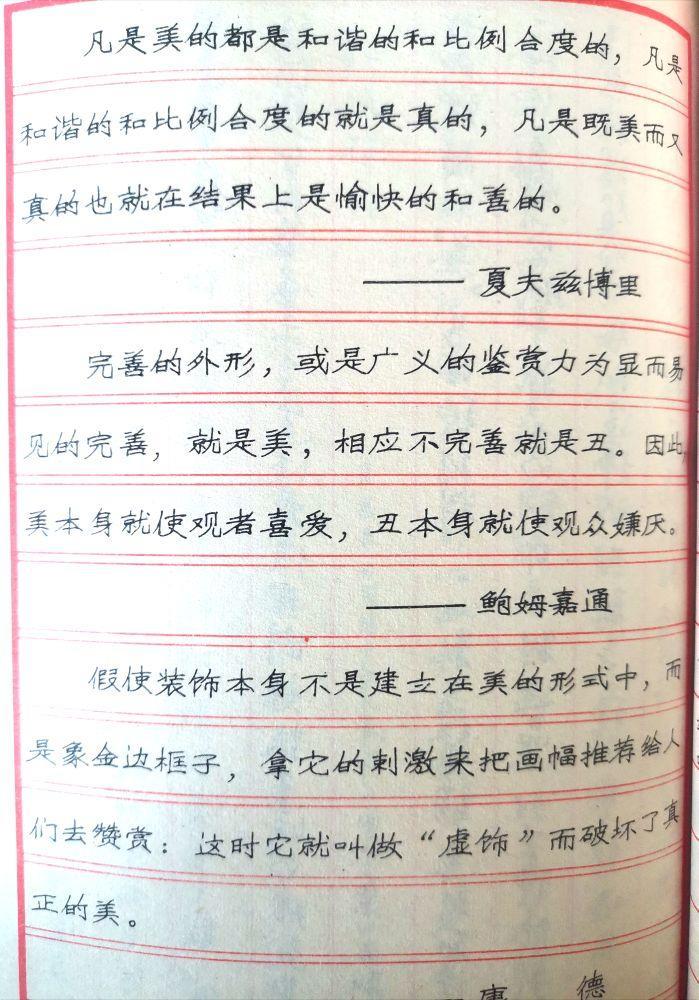 凡是美的都是和谐的和比例合度的，凡是
和谐的和比例合度的就是真的，凡是既美而又
真的也就在结果上是愉快的和善的。
——— 夏夫兹博里
完善的外形，或是广义的鉴赏力为显而易
见的完善，就是美，相应不完善就是丑。因此，
美本身就使观者喜爱，丑本身就使观众嫌厌。
——— 鲍姆嘉通
假使装饰本身不是建立在美的形式中，而
是象金边框子，拿它的刺激来把画幅推荐给人
们去赞赏：这时它就叫做“虚饰”而破坏了真
正的美。
康 德